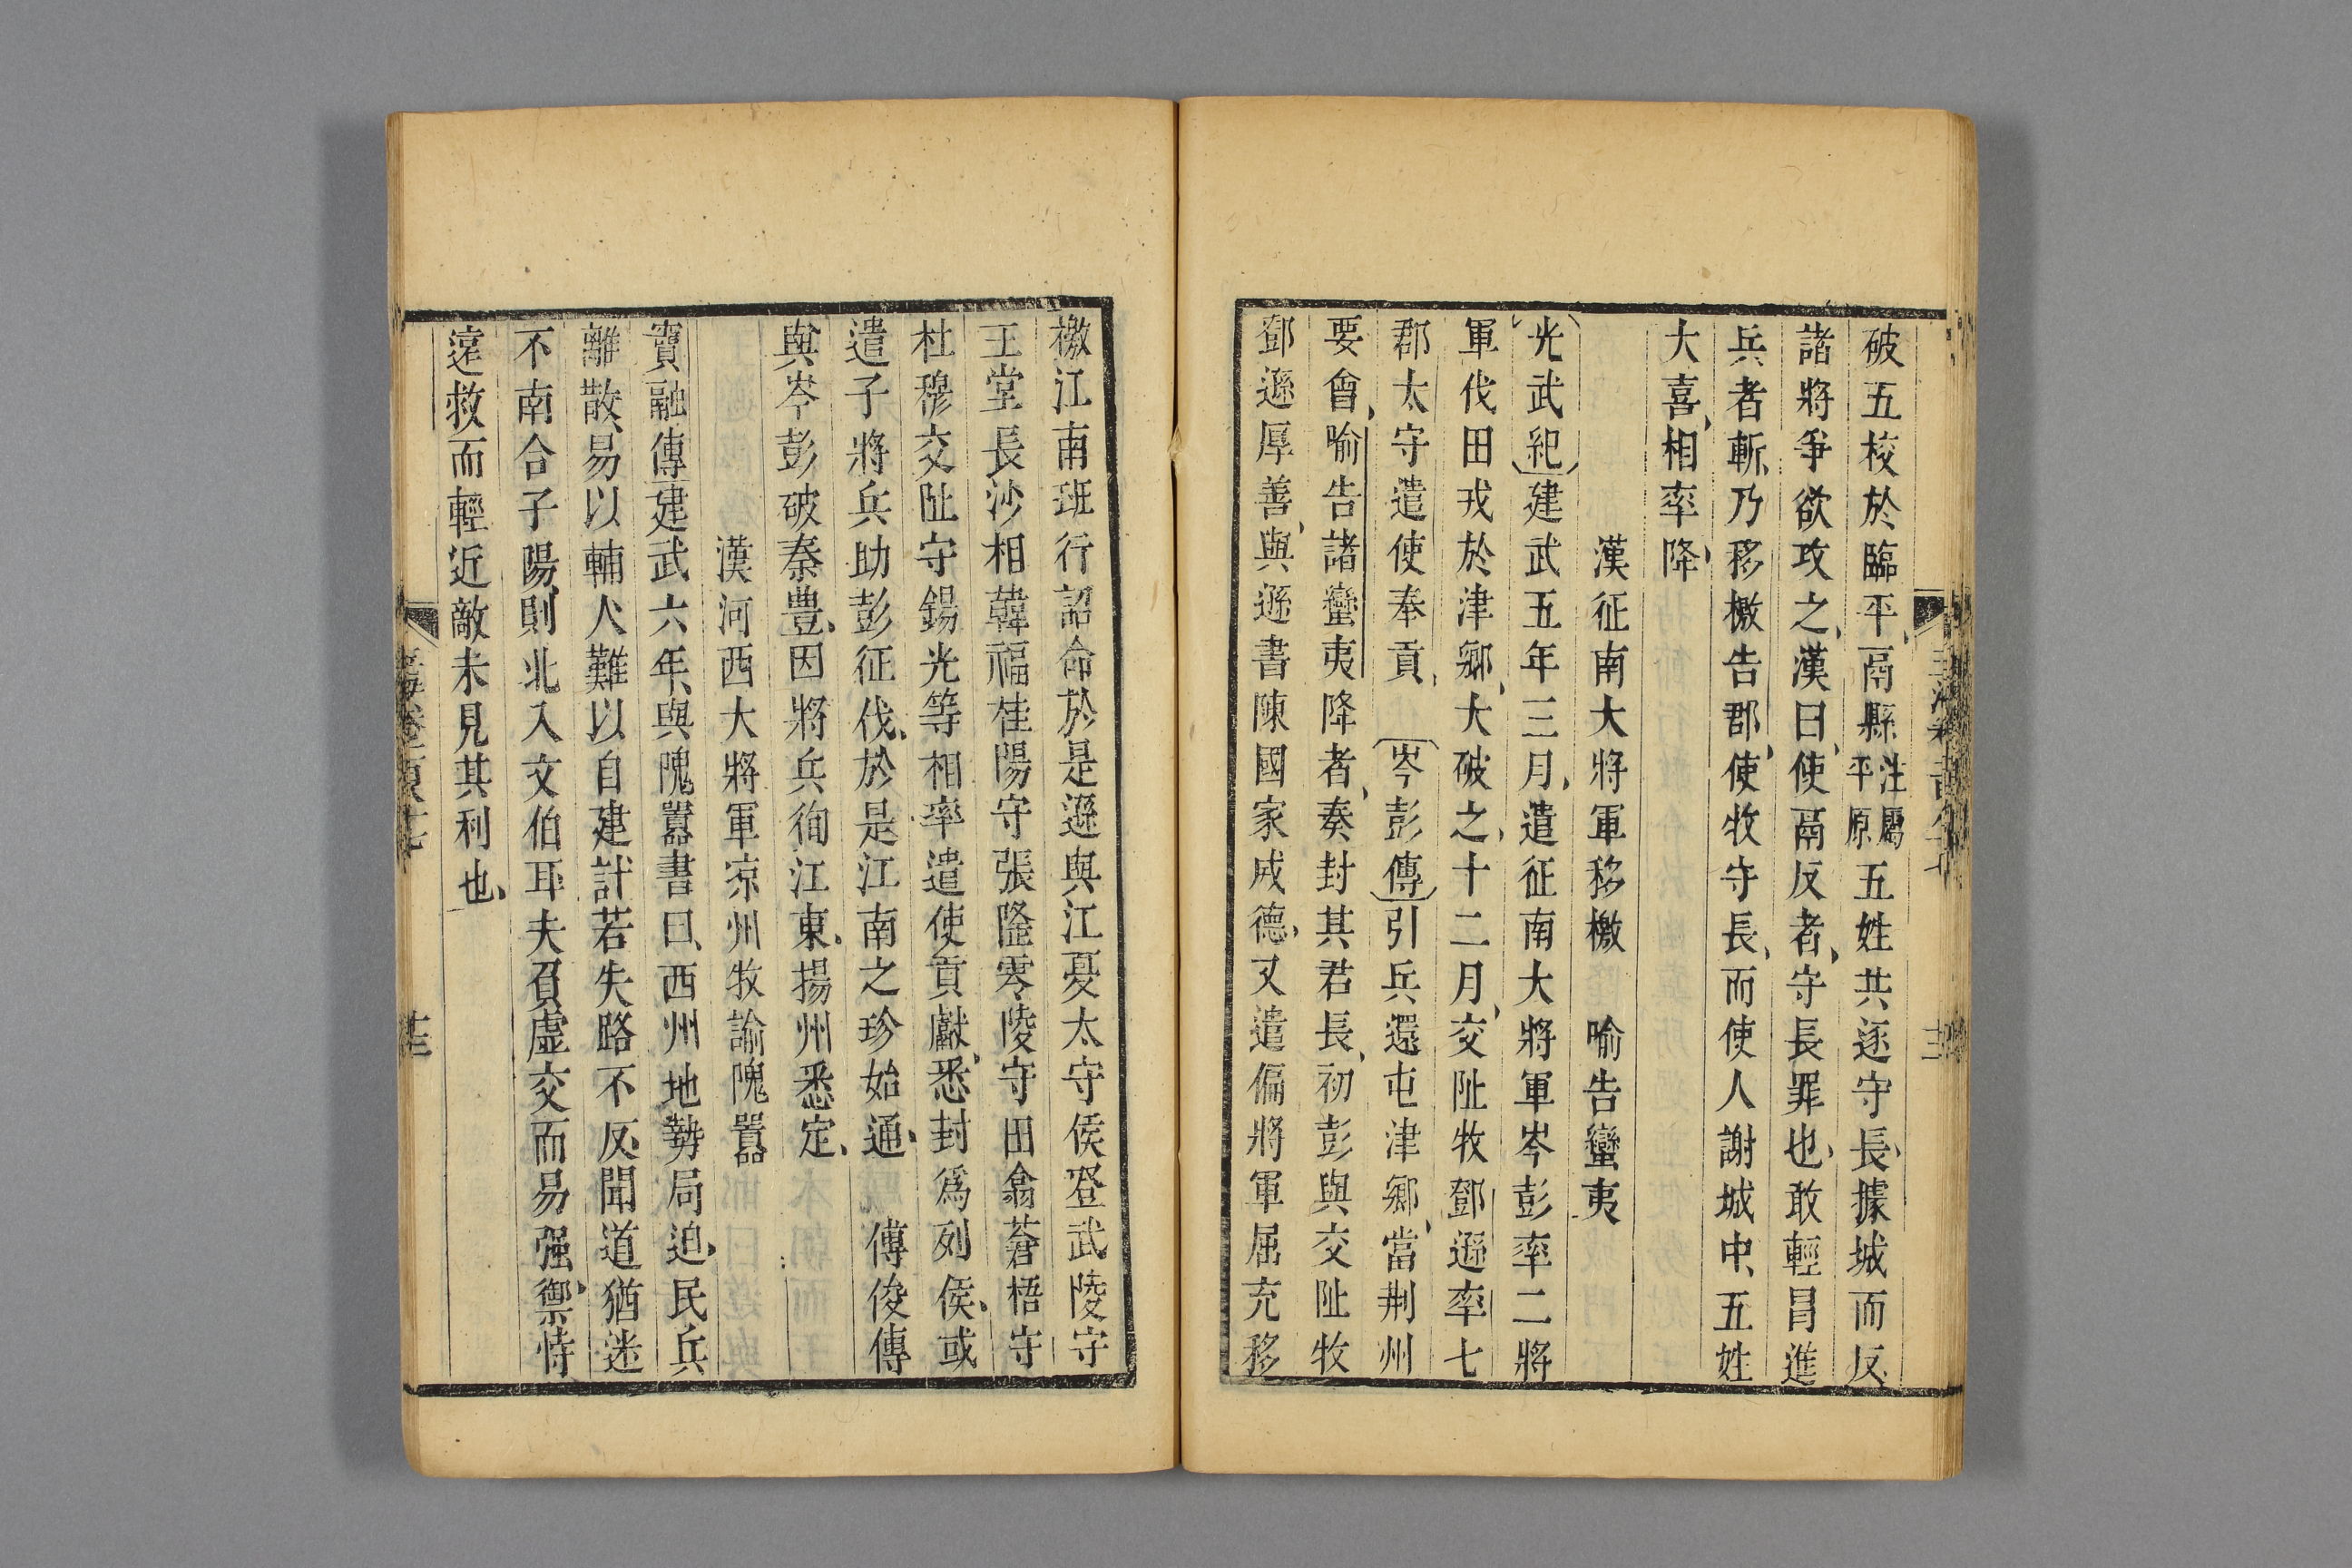 破五校於臨平鬲縣注屬平原五姓共逐守長據城而反
諸將爭欲攻之漢曰使鬲反者守長罪也敢輕冒進
兵者斬乃移檄告郡使牧守長而使人謝城中五姓
大喜相率降
漢征南大將軍移檄 喻告蠻夷
光武紀建武五年三月遣征南大將軍岑彭率二將
軍伐田戎於津鄉大破之十二月交阯牧鄧遜率七
郡太守遣使奉貢 岑彭傳引兵還屯津鄉當荆州
要會喻告諸蠻夷降者奏封其君長初彭與交阯牧
鄧遜厚善與遜書陳國家威德又遣偏將軍屈充移
檄江南班行詔命於是遜與江夏太守侯登武陵守
王堂長沙相韓福桂陽守張隆零陵守田翕蒼梧守
杜穆交阯守錫光等相率遣使貢獻悉封爲列侯或
遣子將兵助彭征伐於是江南之珍始通 傅俊傳
與岑彭破秦豊因將兵徇江東揚州悉定
漢河西大將軍凉州牧諭隗囂
竇融傳建武六年與隗囂書曰西州地勢局迫民兵
離散易以輔人難以自建計若失路不反聞道猶迷
不南合子陽則北入文伯耳夫負虛交而易强禦恃
遠救而輕近敵未見其利也